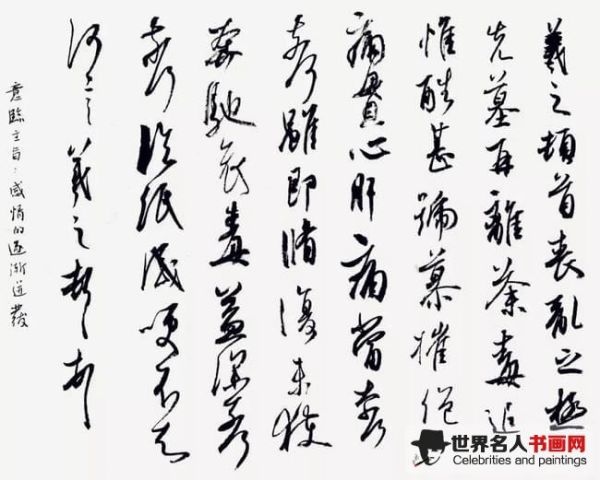 羲之頓首喪亂之極
先墓再離荼毒追
惟酷甚號慕摧絶
痛貫心肝痛當奈何
奈何雖即脩復未獲
奔馳哀毒益深奈何
奈何臨紙感哽不知
何言羲之頓首頓首
意臨主旨：感情的逐漸迸發
世界名人书画网
Celebrities and paintings